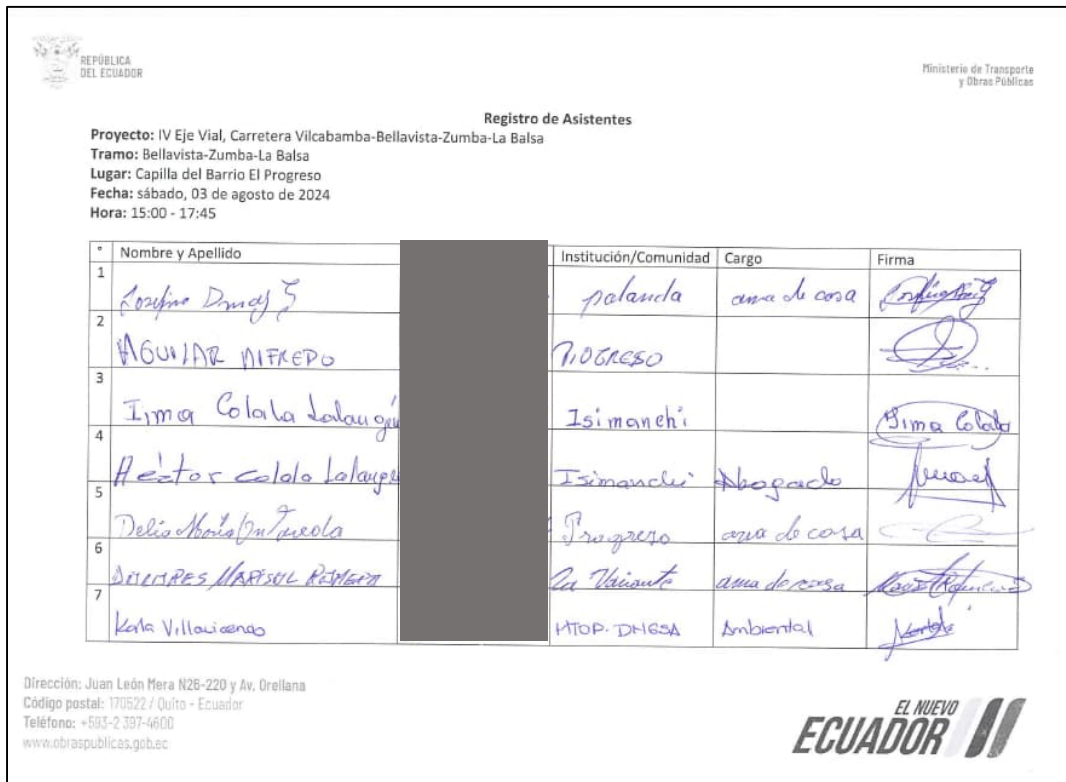 REPÚBLICA
DEL ECUADOR
Ministerio de Transporte
y Obras Públicas
Registro de Asistentes
Proyecto: IV Eje Vial, Carretera Vilcabamba-Bellavista-Zumba-La Balsa
Tramo: Bellavista-Zumba-La Balsa
Lugar: Capilla del Barrio El Progreso
Fecha: sábado, 03 de agosto de 2024
Hora: 15:00 - 17:45
° Nombre y Apellido Institución/Comunidad Cargo Firma
1 Josefina palanda ama de casa
2 AGUILAR ALFREDO PROGRESO
3 Irma Colala Lalangui Isimanchi Irma Colala
4 Héctor Colala Lalangui Isimanchi Abogado
5 Delia María Progreso ama de casa
6 MARISOL ROMERO La Variante ama de casa
7 Karla Villavicencio MTOP-DNGSA Ambiental
Dirección: Juan León Mera N26-220 y Av. Orellana
Código postal: 170522 / Quito - Ecuador
Teléfono: +593-2 397-4600
www.obraspublicas.gob.ec
EL NUEVO
ECUADOR